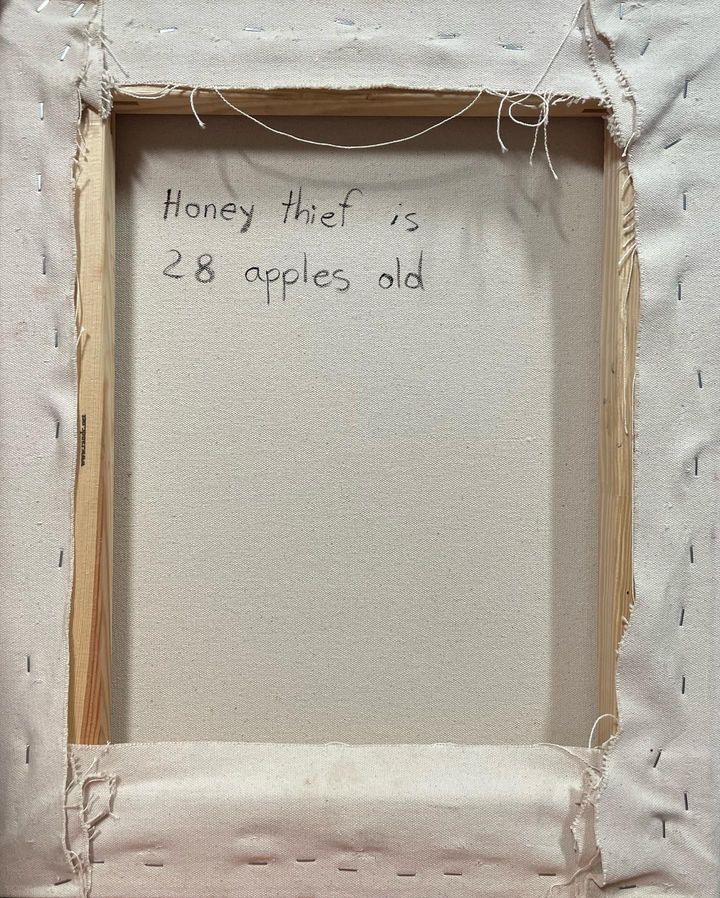 Honey thief is
28 apples old